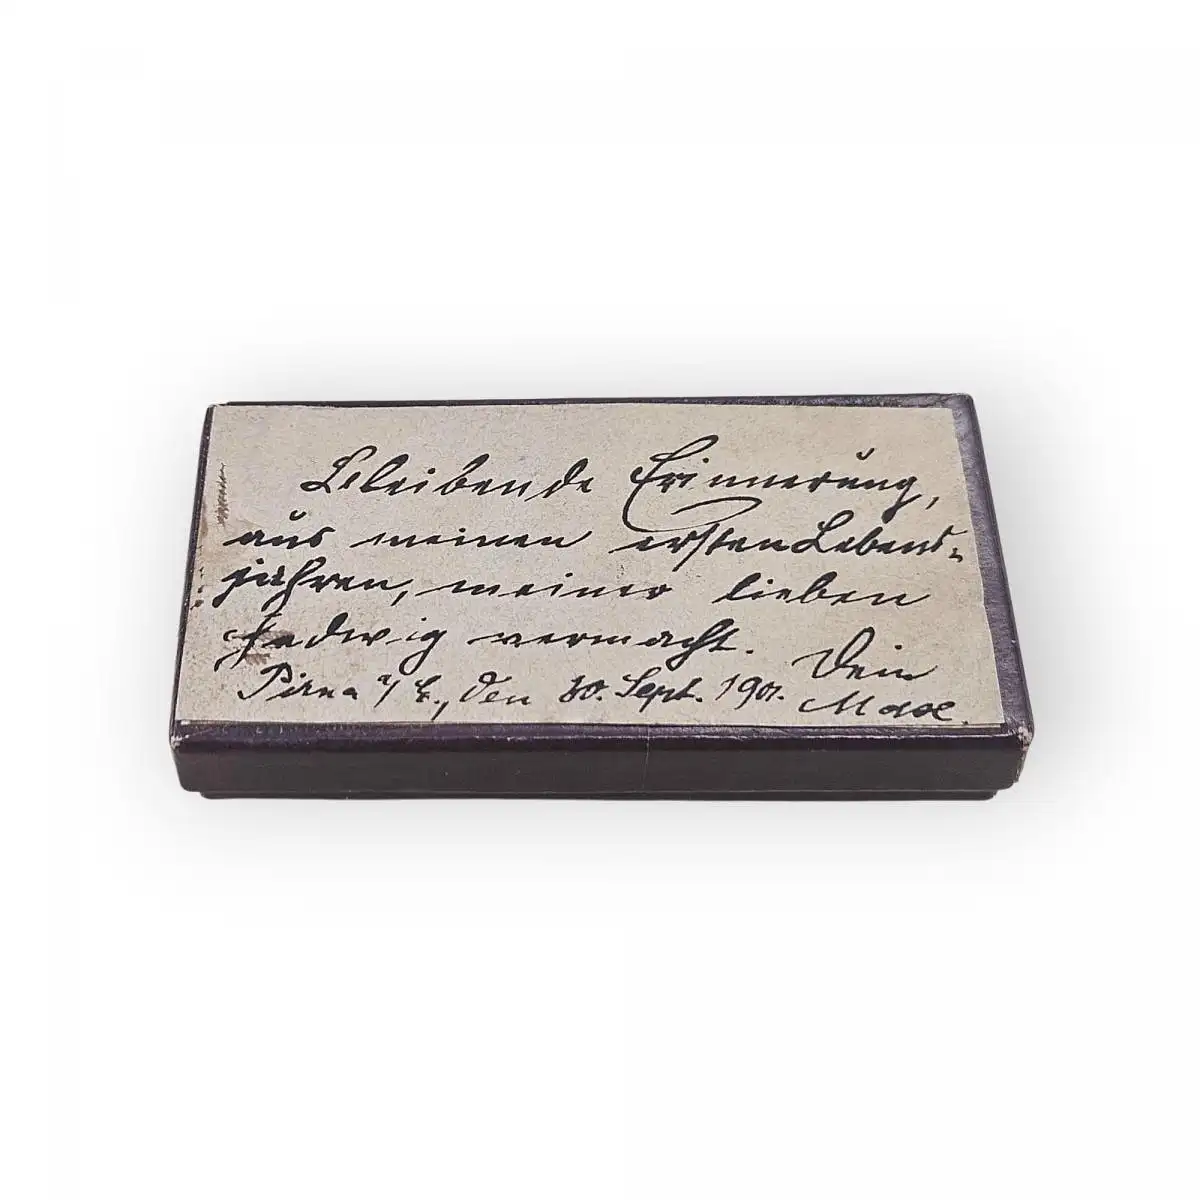 Bleibende Erinnerung,
aus meinen ersten Lebens-
jahren, meiner lieben
Hedwig vermacht.
Dein
Pirna a/E., den 30. Sept. 1901. Max.